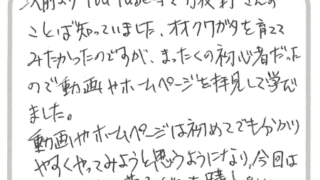 以前より YouTube で さんの
ことは知っていました、オオクワガタを育てて
みたかったのですが、まったくの初心者だった
ので動画やホームページを拝見して学び
ました。
動画やホームページは初めてでも分かり
やすくやってみようと思うようになり、今回は